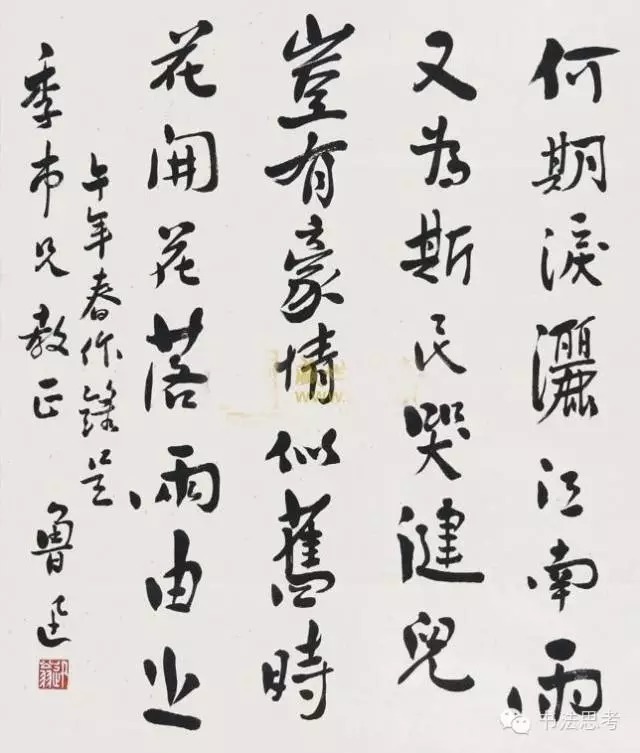 何期淚灑江南雨
又為斯民哭健兒
豈有豪情似舊時
花開花落兩由之
午年春作錄呈
季市兄教正
魯迅
www.
书法思考